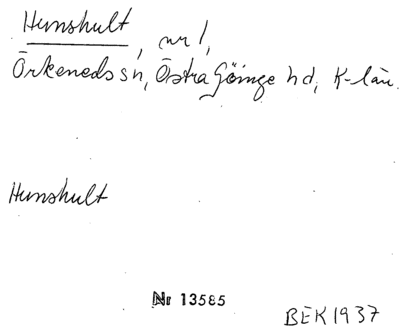 Hunshult, nr 1,
Örkeneds sn, Östra Göinge hd, K-län.
Hunshult
Nr 13585
BEK 1937